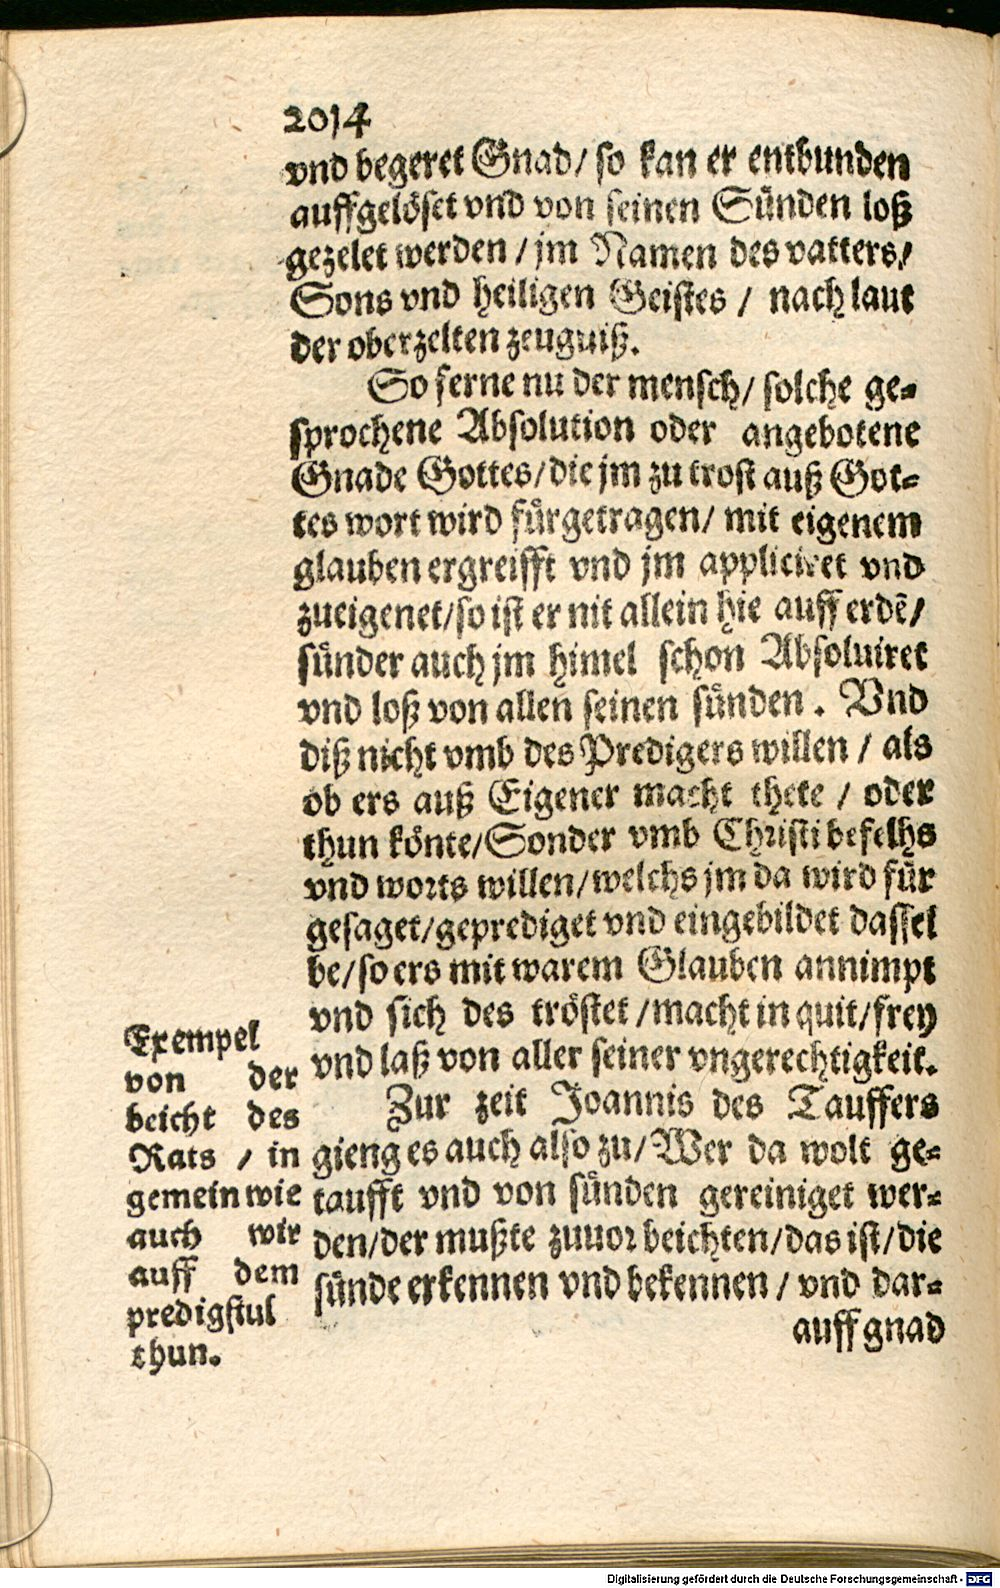 2014
vnd begeret Gnad/ so kan er entbunden
auffgelöset vnd von seinen Sünden loß
gezelet werden / jm Namen des vatters/
Sons vnd heiligen Geistes / nach laut
der oberzelten zeugniß.
So ferne nu der mensch/ solche ge-
sprochene Absolution oder angebotene
Gnade Gottes/die jm zu trost auß Got-
tes wort wird fürgetragen/ mit eigenem
glauben ergreifft vnd jm appliciret vnd
zueigenet/so ist er nit allein hie auff erdē/
sünder auch jm himel schon Absoluiret
vnd loß von allen seinen sünden. Vnd
diß nicht vmb des Predigers willen / als
ob ers auß Eigener macht thete / oder
thun könte/Sonder vmb Christi befelhs
vnd worts willen/welchs jm da wird für
gesaget/geprediget vnd eingebildet dassel
be/so ers mit warem Glauben annimpt
vnd sich des tröstet /macht in quit/frey
vnd laß von aller seiner vngerechtigkeit.
Zur zeit Joannis des Tauffers
gieng es auch also zu/Wer da wolt ge-
taufft vnd von sünden gereiniget wer-
den/der mußte zuuor beichten/das ist/die
sünde erkennen vnd bekennen / vnd dar-
auff gnad
Exempel
von der
beicht des
Rats / in
gemein wie
auch wir
auff dem
predigstul
thun.
Digitalisierung gefördert durch die Deutsche Forschungsgemeinschaft - DFG